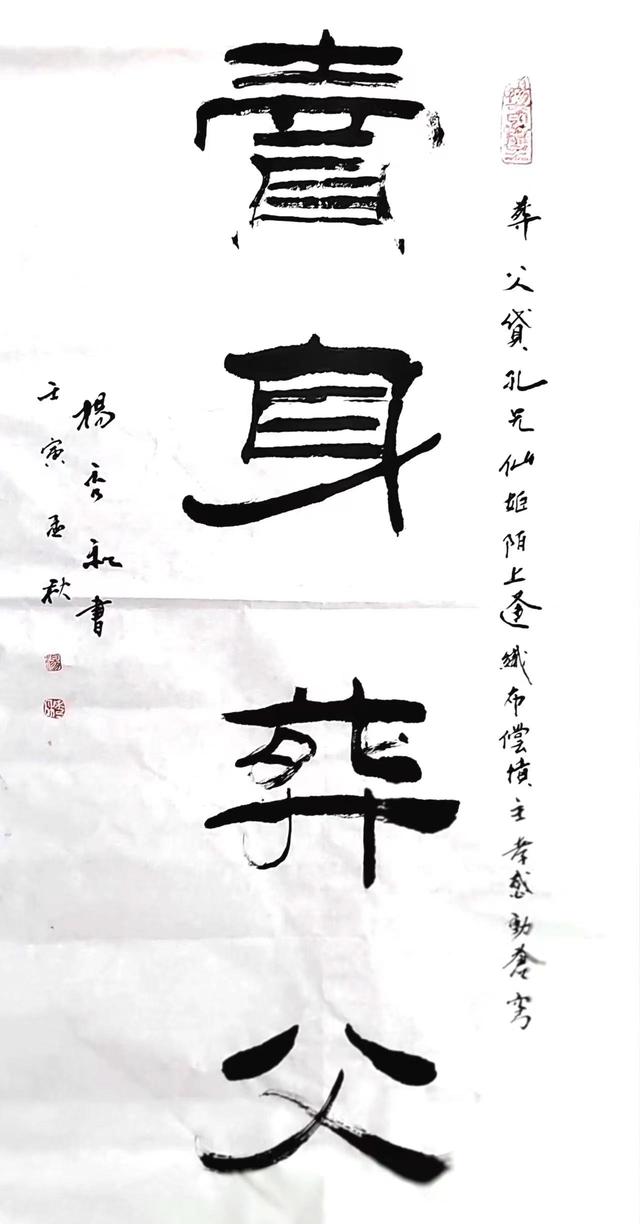 葬父貸孔兄仙姬陌上逢織布偿債主孝感動蒼穹
賣身葬父
楊秀和書
壬寅孟秋